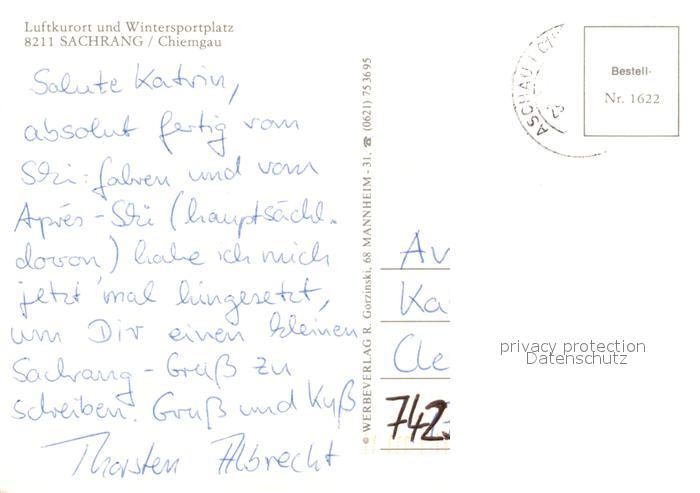 Luftkurort und Wintersportplatz
8211 SACHRANG / Chiemgau
Salute Katrin,
absolut fertig vom
Ski-fahren und vom
Après-Ski (hauptsächl.
davon) habe ich mich
jetzt 'mal hingesetzt,
um Dir einen kleinen
Sachrang-Gruß zu
schreiben. Gruß und Kuß
Thorsten Albrecht
© WERBEVERLAG R. Gorzinski, 68 MANNHEIM-31, ☎ (0621) 753695
ASCHAU I CH
Bestell-
Nr. 1622
Av
Ka
Cle
742
privacy protection
Datenschutz